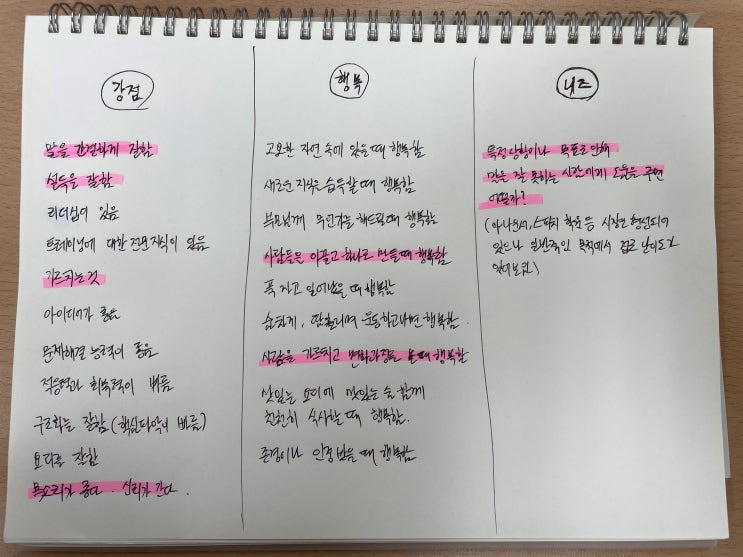 강점
말을 간결하게 잘함
설득을 잘함
리더십이 있음
트레이닝에 대한 전문지식이 있음
가르치는 것
아이디어가 좋음
문제해결 능력이 좋음
적응력과 회복력이 빠름
구조화를 잘함 (핵심파악이 빠름)
요리를 잘함
목소리가 좋다. 신뢰가 간다.
행복
고요한 자연 속에 있을 때 행복함
새로운 지식을 습득할 때 행복함
부모님께 무언가를 해드릴 때 행복함
사람들을 이끌고 하나로 만들 때 행복함
푹 자고 일어났을 때 행복함
숨차게, 땀흘리며 운동하고나면 행복함.
사람을 가르치고 변화과정을 볼 때 행복함
맛있는 요리에 맛있는 술 함께
천천히 식사할 때 행복함.
존경이나 인정받을 때 행복함
니즈
특정상황이나 목표로 인해
말을 잘 못하는 사람에게 도움을 주면
어떨까?
(아나운서, 스피치 학원 등 시장은 형성되어
있으나 일반적인 목적에서 접근 난이도가
있어보임)